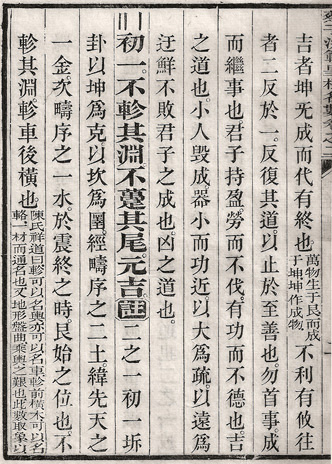 吉者坤旡成而代有終也萬物生于艮而成于坤坤作成物不利有攸往
者二反於一反復其道以止於至善也勿首事成
而繼事也君子持盈勞而不伐有功而不德也吉
之道也小人毀成器小而功近以大爲疏以遠爲
迂鮮不敗君子之成也凶之道也
初一不軫其淵不躉其尾元吉註二之一初一坼
卦以坤爲克以坎爲圍經疇序之二土緯先天之
一金次疇序之一水於震終之時艮始之位也不
軫其淵軫車後橫也陳氏祥道曰軫可以名輿亦可以名車軫前橫木可以名輅一材而通名也又地形盤曲乘輿之艱也此數取象以